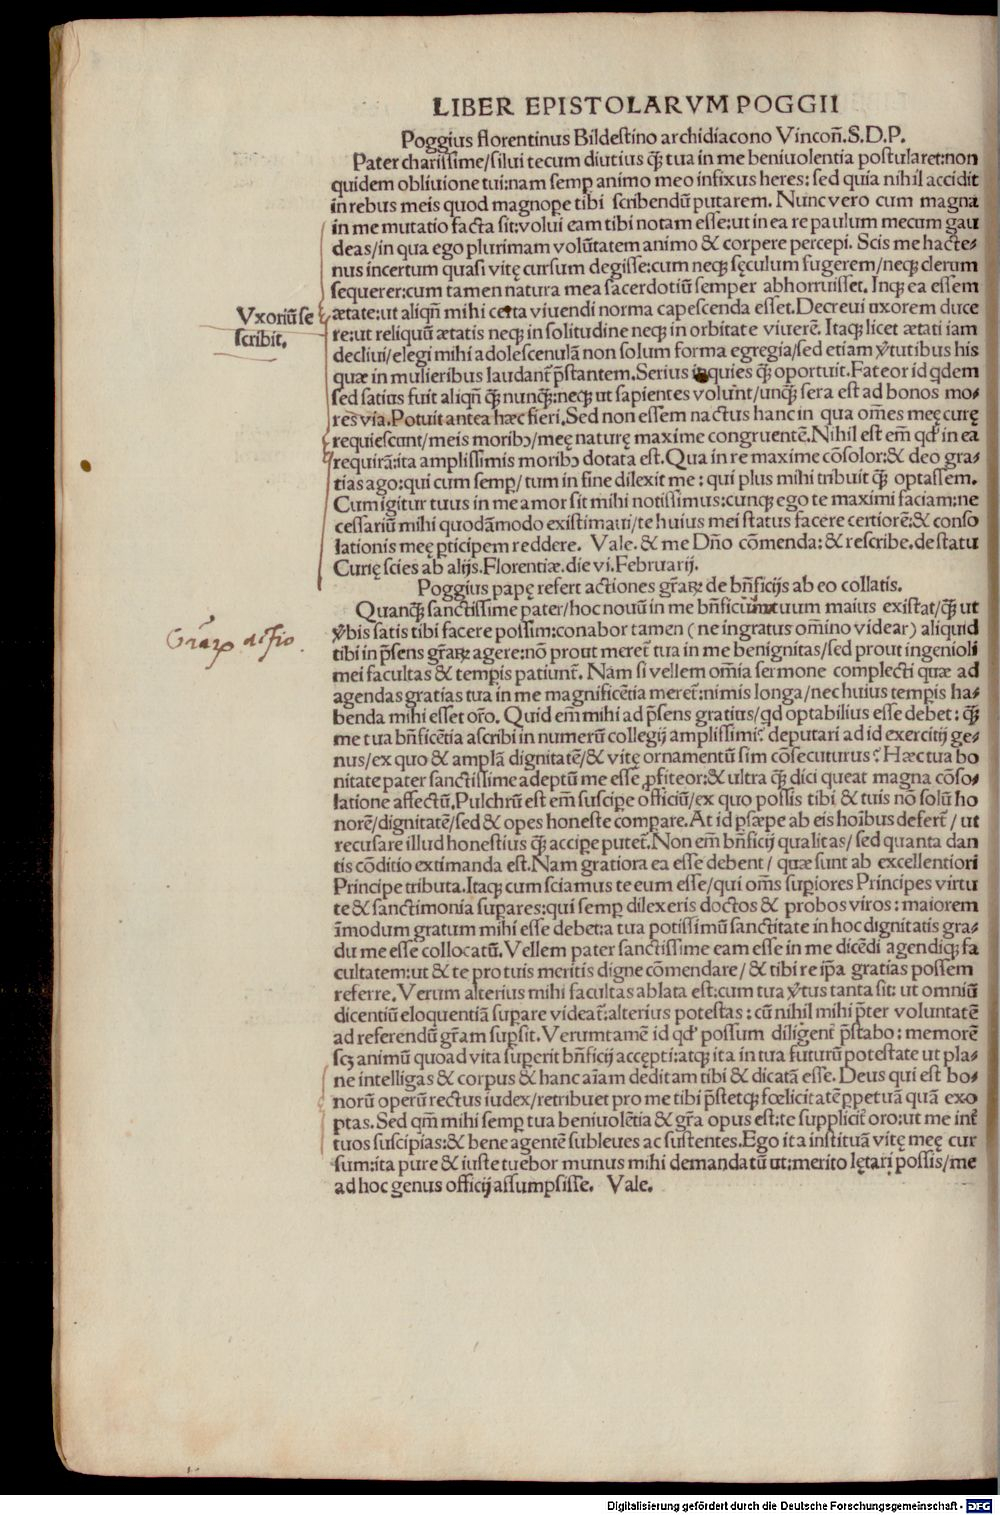 LIBER EPISTOLARVM POGGII
Poggius florentinus Bildestino archidiacono Vincon̄.S.D.P.
Pater charissime/silui tecum diutius q̄ꝫ tua in me beniuolentia postularet:non
quidem obliuione tui:nam semꝑ animo meo infixus heres: sed quia nihil accidit
in rebus meis quod magnope tibi scribendū putarem. Nunc vero cum magna
in me mutatio facta sit:volui eam tibi notam esse:ut in ea re paulum mecum gau
deas/in qua ego plurimam volūtatem animo & corpere percepi. Scis me hacte⸗
nus incertum quasi vitę cursum degisse:cum neqꝫ sęculum fugerem/neqꝫ clerum
sequerer:cum tamen natura mea sacerdotiū semper abhorruisset. Inqꝫ ea essem
Vxoriū se
scribit.
ætate:ut aliqn̄ mihi certa viuendi norma capescenda esset.Decreui uxorem duce
re:ut reliquū ætatis neqꝫ in solitudine neqꝫ in orbitate viuerē. Itaqꝫ licet ætati iam
decliui/elegi mihi adolescenulā non solum forma egregia/sed etiam v̓tutibus his
quæ in mulieribus laudant᷑ p̄stantem.Serius inquies q̄ꝫ oportuit.Fateor id qdem
sed satius fuit aliqn̄ q̄ꝫ nunq̄ꝫ:neqꝫ ut sapientes volunt/unq̄ꝫ sera est ad bonos mo⸗
res via.Potuit antea hæc fieri.Sed non essem nactus hanc in qua om̄es meę curę
requiescunt/meis moribꝫ/meę naturę maxime congruentē.Nihil est em̄ qd' in ea
requirā:ita amplissimis moribꝫ dotata est.Qua in re maxime cōsolor:& deo gra⸗
tias ago:qui cum semꝑ/tum in fine dilexit me: qui plus mihi tribuit q̄ꝫ optassem.
Cum igitur tuus in me amor sit mihi notissimus:cunqꝫ ego te maximi faciam:ne
cessariū mihi quodāmodo existimaui/te huius mei status facere certiorē:& conso
lationis meę ꝑticipem reddere. Vale.& me Dn̄o cōmenda:& rescribe.de statu
Curię scies ab alijs.Florentiæ.die vi.Februarij.
Poggius papę refert actiones gr̄aꝝ de bn̄ficijs ab eo collatis.
Quanq̄ꝫ sanctissime pater/hoc nouū in me bn̄ficium tuum maius existat/q̄ꝫ ut
v̓bis satis tibi facere possim:conabor tamen (ne ingratus om̄ino videar) aliquid
tibi in p̄sens gr̄aꝝ agere:nō prout meret᷑ tua in me benignitas/sed prout ingenioli
mei facultas & tempis patiunt᷑. Nam si vellem om̄ia sermone complecti quæ ad
agendas gratias tua in me magnificētia meret᷑:nimis longa/nec huius tempis ha⸗
benda mihi esset or̄o. Quid em̄ mihi ad p̄sens gratius/qd optabilius esse debet: q̄ꝫ
me tua bn̄ficētia ascribi in numerū collegij amplissimi? deputari ad id exercitij ge⸗
nus/ex quo & amplā dignitatē/& vitę ornamentū sim cōsecuturus? Hæc tua bo
nitate pater sanctissime adeptū me esse ꝓfiteor:& ultra q̄ꝫ dici queat magna cōso⸗
latione affectū.Pulchrū est em̄ suscipe officiū/ex quo possis tibi & tuis nō solū ho
norē/dignitatē/sed & opes honeste compare.At id ꝑsæpe ab eis hoībus defert᷑/ ut
recusare illud honestius q̄ꝫ accipe putet᷑.Non em̄ bn̄ficij qualitas/ sed quanta dan
tis cōditio extimanda est.Nam gratiora ea esse debent/ quæ sunt ab excellentiori
Principe tributa.Itaqꝫ cum sciamus te eum esse/qui om̄s supiores Principes virtu
te & sanctimonia supares:qui semꝑ dilexeris doctos & probos viros: maiorem
īmodum gratum mihi esse debet:a tua potissimū sanctitate in hoc dignitatis gra⸗
du me esse collocatū.Vellem pater sanctissime eam esse in me dicēdi agendiqꝫ fa
cultatem:ut & te pro tuis meritis digne cōmendare/ & tibi re ip̄a gratias possem
referre.Verum alterius mihi facultas ablata est:cum tua v̓tus tanta sit: ut omniū
dicentiū eloquentiā supare videat᷑:alterius potestas: cū nihil mihi p̄ter voluntatē
ad referendū gr̄am supsit.Verumtamē id qd' possum diligent᷑ p̄stabo: memorē
scꝫ animū quoad vita superit bn̄ficij accępti:atqꝫ ita in tua futurū potestate ut pla⸗
ne intelligas & corpus & hanc aīam deditam tibi & dicatā esse. Deus qui est bo⸗
norū operū rectus iudex/retribuet pro me tibi p̄stetqꝫ fœlicitatē ꝑpetuā quā exo
ptas. Sed qm̄ mihi semꝑ tua beniuolētia & gr̄a opus est:te supplicit᷑ oro:ut me int᷑
tuos suscipias:& bene agentē subleues ac sustentes.Ego ita instituā vitę meę cur
sum:ita pure & iuste tuebor munus mihi demandatū ut:merito lętari possis/me
ad hoc genus officij assumpsisse. Vale.
Digitalisierung gefördert durch die Deutsche Forschungsgemeinschaft - DFG